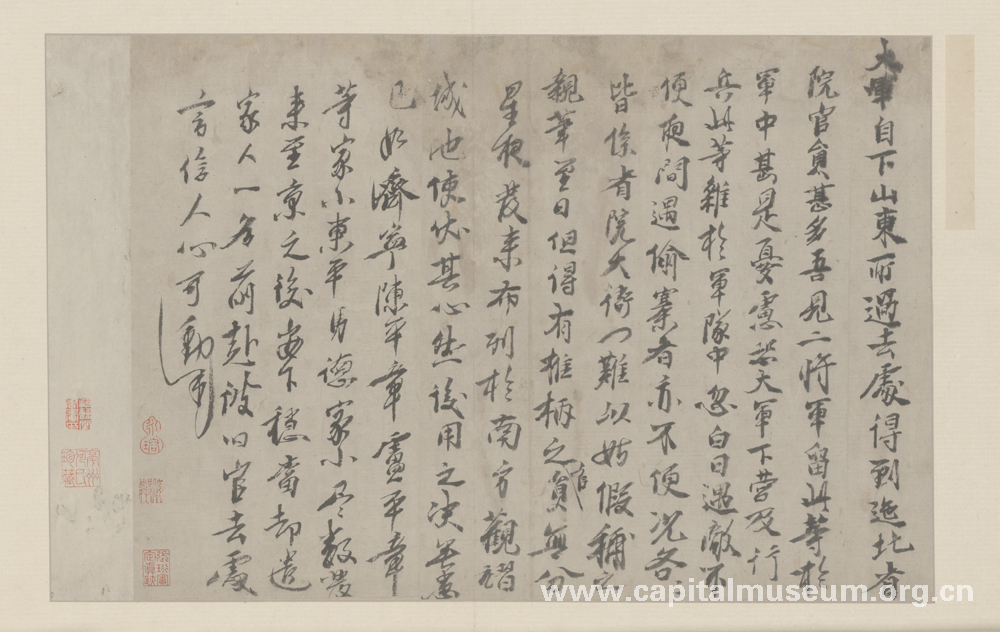 大軍自下山東所過去處得到迤北省
院官員甚多吾見二將軍留此等於
軍中甚是憂慮恐大軍下營及行
兵此等雜於軍隊中忽白日遇敵不
便夜間遇偷寨者亦不便況各
皆係省院大衙門難以姑假補
親筆至日但得有椎柄之官員無分
星夜發來布列於南方觀玩
城池使伏其心然後用之決無患
已如濟寧陳平章盧平章
等家小東平馬德家小尽數發
来至京之後安下穩當却遣
家人一名前赴彼旧官去處
言信人心可動
www.capitalmuseum.org.cn